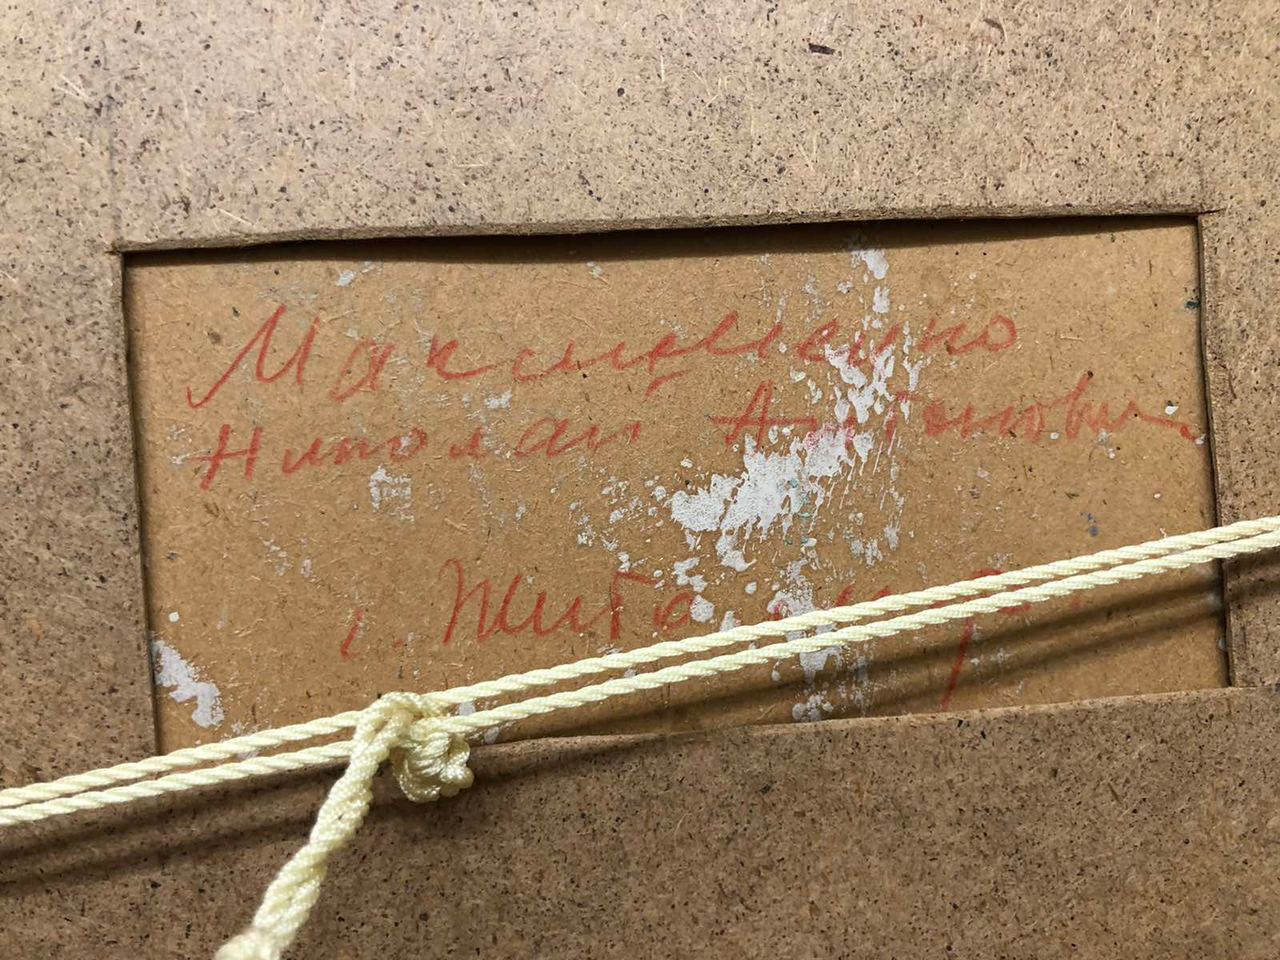 Максименко
Николай Антонович
г. Житомир.